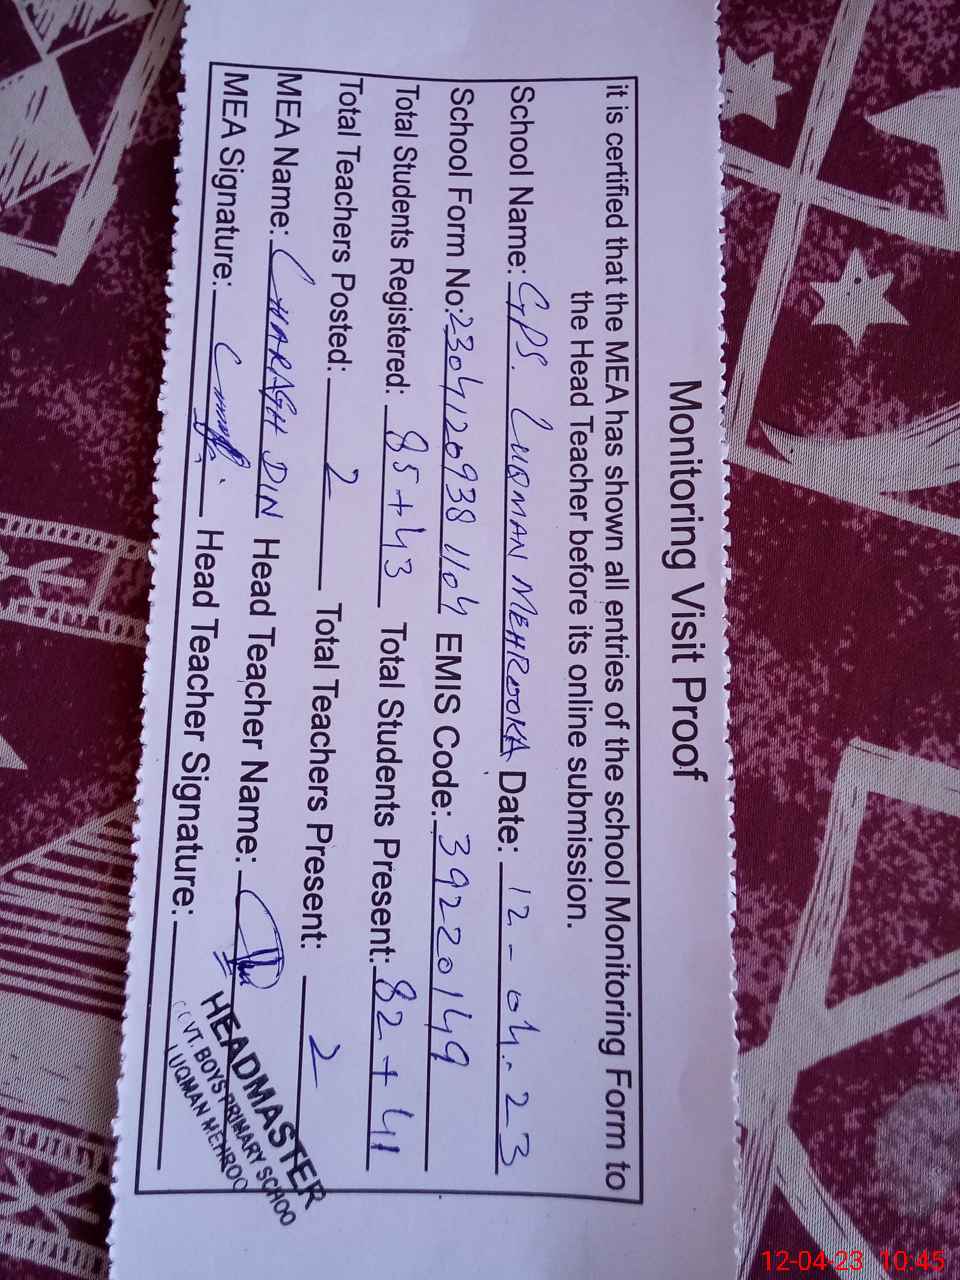 Monitoring Visit Proof
it is certified that the MEA has shown all entries of the school Monitoring Form to
the Head Teacher before its online submission.
School Name: GPS. LUQMAN MEHROOKA Date: 12-04-23
School Form No: 2304120938 1104 EMIS Code: 39220149
Total Students Registered: 85+43 Total Students Present: 82+41
Total Teachers Posted: 2 Total Teachers Present: 2
MEA Name: CHARAGH DIN Head Teacher Name:
MEA Signature: Head Teacher Signature:
HEADMASTER
GOVT. BOYS PRIMARY SCHOO
LUQMAN MEHROO
12-04-23 10:45